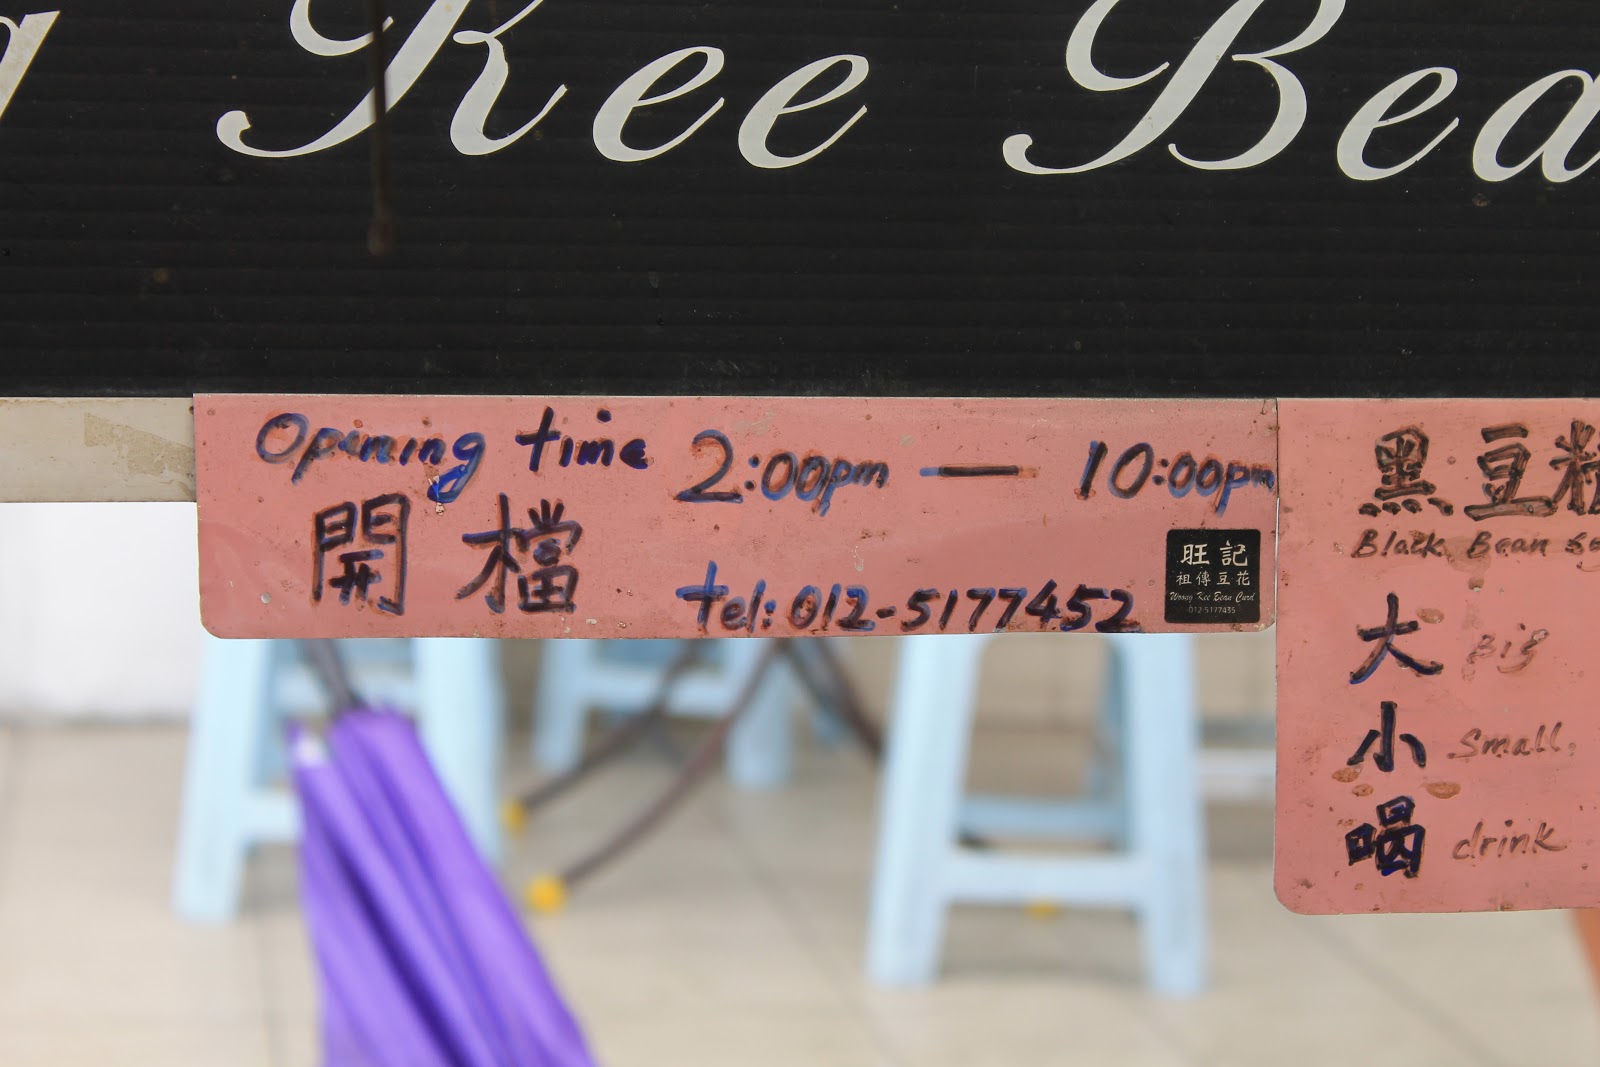 Kee Bea
Opening time 2:00pm — 10:00pm
開檔
tel: 012-5177452
旺記
祖傳豆花
Woong Kee Bean Curd
黑豆
Black Bean
大 Big
小 Small
喝 drink